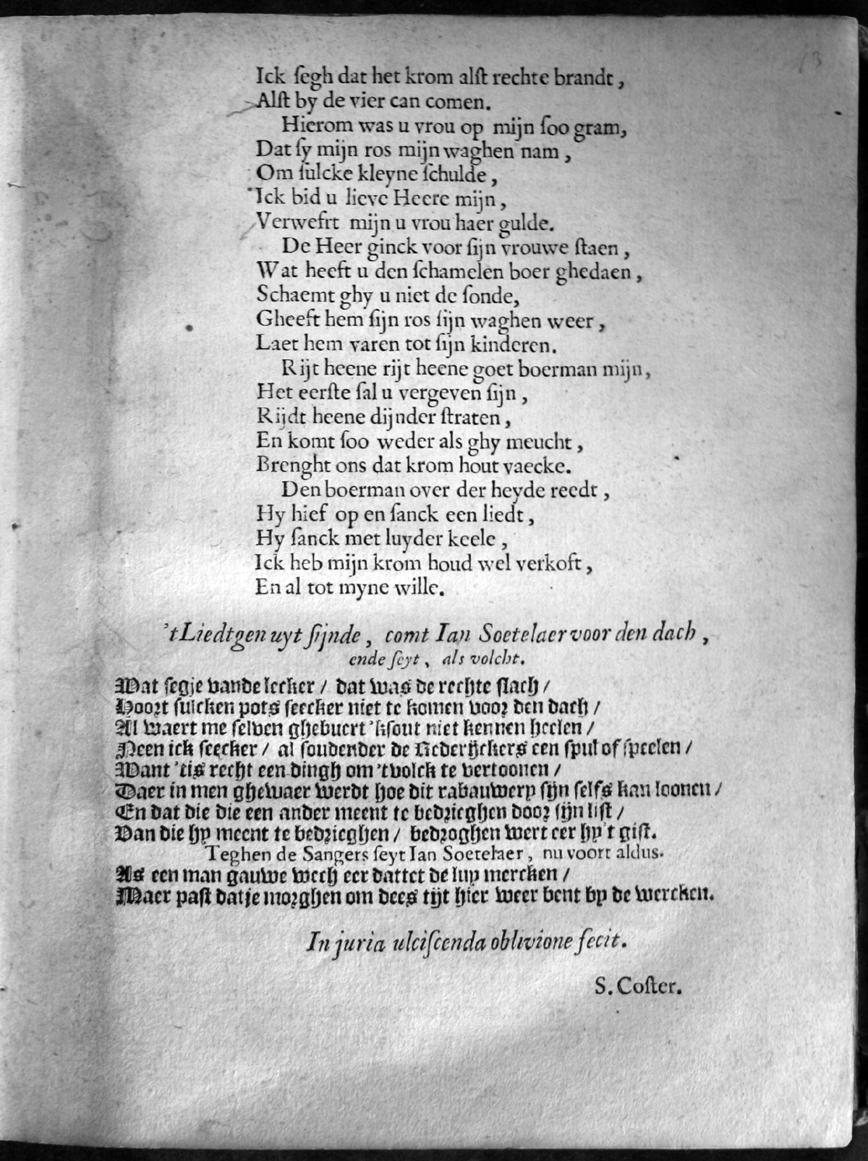 Ick ſegh dat het krom alſt rechte brandt,
Alſt by de vier can comen.
Hierom was u vrou op mijn ſoo gram,
Dat ſy mijn ros mijn waghen nam,
Om ſulcke kleyne ſchulde,
Ick bid u lieve Heere mijn,
Verweſrt mijn u vrou haer gulde.
De Heer ginck voor ſijn vrouwe ſtaen,
Wat heeft u den ſchamelen boer ghedaen,
Schaemt ghy u niet de ſonde,
Gheeft hem ſijn ros ſijn waghen weer,
Laet hem varen tot ſijn kinderen.
Rijt heene rijt heene goet boerman mijn,
Het eerſte ſal u vergeven ſijn,
Rijdt heene dijnder ſtraten,
En komt ſoo weder als ghy meucht,
Brenght ons dat krom hout vaecke.
Den boerman over der heyde reedt,
Hy hief op en ſanck een liedt,
Hy ſanck met luyder keele,
Ick heb mijn krom houd wel verkoft,
En al tot myne wille.
'tLiedtgen uyt ſijnde, comt Ian Soetelaer voor den dach,
ende ſeyt, als volcht.
Wat ſegje vande lecker / dat was de rechte ſlach /
Hoort ſulcken pots ſeecker niet te komen voor den dach /
Al waert me ſelven ghebuert 'kſout niet kennen heelen /
Neen ick ſeecker / al ſoudender de Rederijckers een ſpul of ſpeelen /
Want 'tis recht een dingh om 'tvolck te vertoonen /
Daer in men ghewaer werdt hoe dit rabauwerp ſijn ſelfs kan loonen /
En dat die die een ander meent te bedrieghen door ſijn liſt /
Van die hy meent te bedrieghen / bedroghen wert eer hy't giſt.
Teghen de Sangers ſeyt Ian Soetelaer, nu voort aldus.
As een man gauwe wech eer dattet de luy mercken /
Maer paſt datje morghen om dees tijt hier weer bent by de wercken.
In juria ulciſcenda oblivione fecit.
S. Coſter.